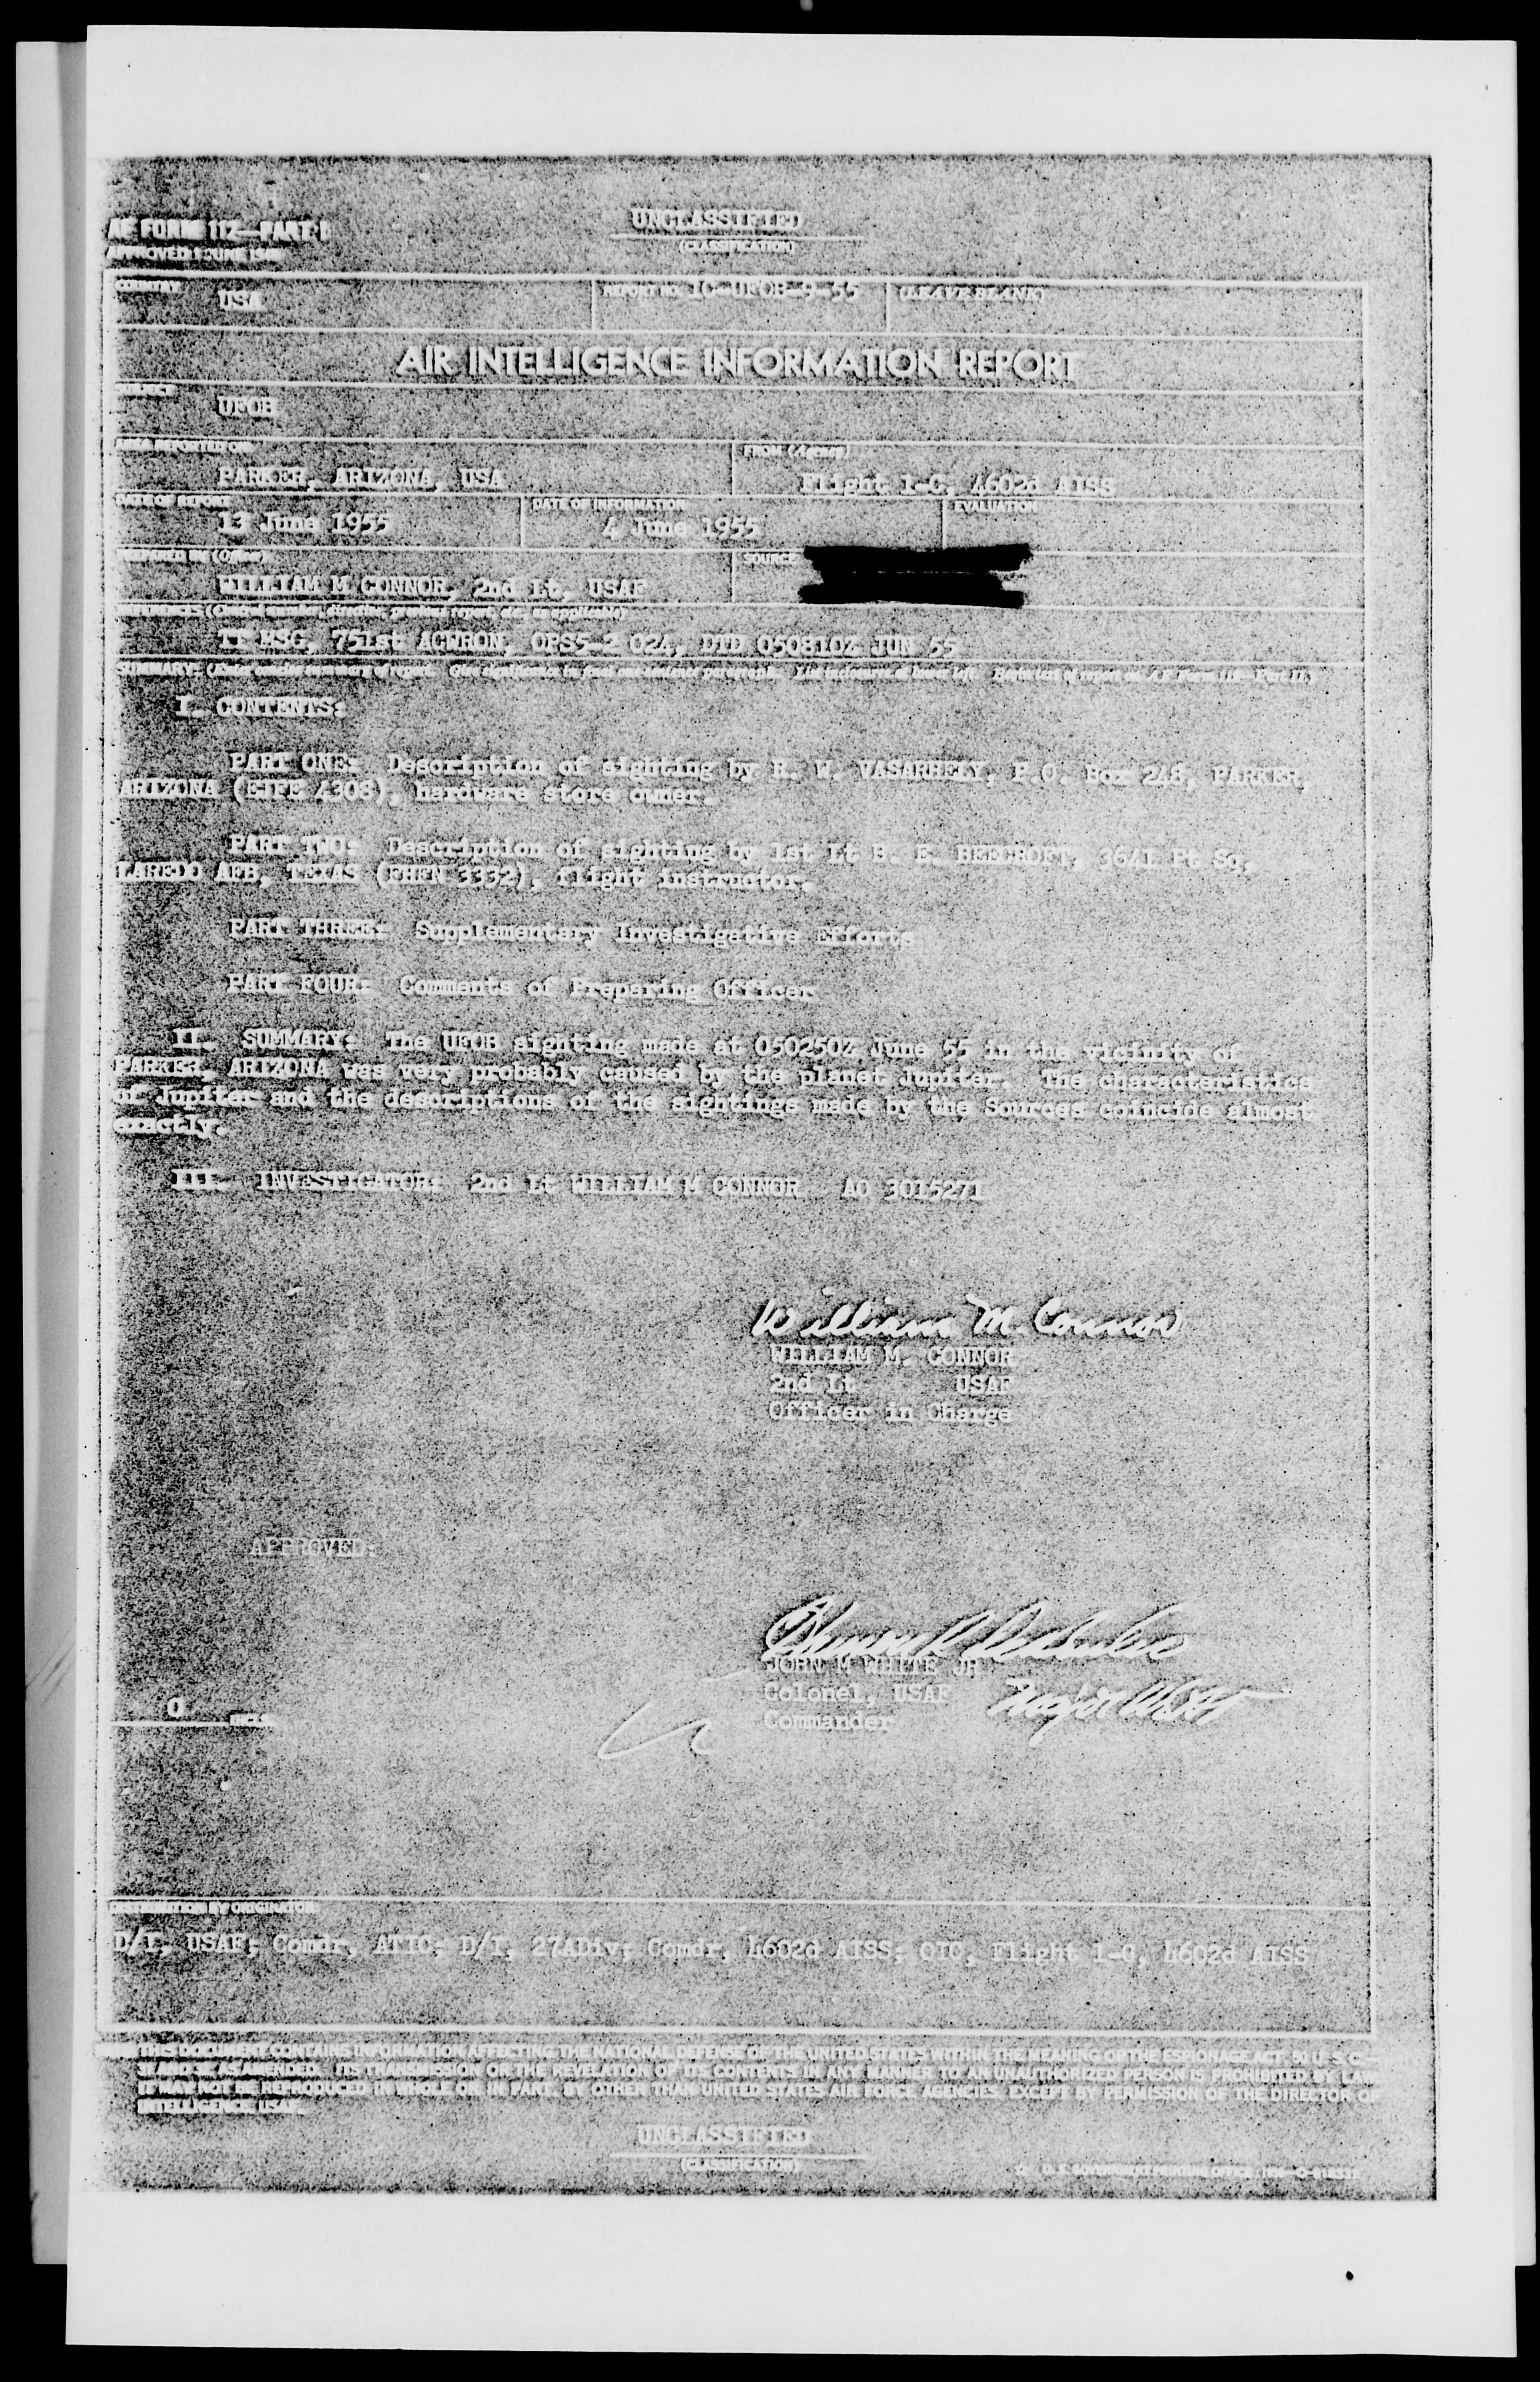 AF FORM 112—PART I
APPROVED 1 JUNE 1948
UNCLASSIFIED
(CLASSIFICATION)
COUNTRY
USA
REPORT NO. 1C-UFOB-9-55
(LEAVE BLANK)
AIR INTELLIGENCE INFORMATION REPORT
SUBJECT
UFOB
AREA REPORTED ON
PARKER, ARIZONA, USA
FROM (Agency)
Flight 1-C, 4602d AISS
DATE OF REPORT
13 June 1955
DATE OF INFORMATION
4 June 1955
EVALUATION
PREPARED BY (Officer)
WILLIAM M CONNOR, 2nd Lt, USAF
SOURCE
REFERENCES (Control number, directive, previous report, etc., as applicable)
TT MSG, 751st ACWRON, OPS5-2 024, DTD 050810Z JUN 55
SUMMARY: (Enter concise summary of report. Give significance in final one-sentence paragraph. List inclosures at lower left. Begin text of report on AF Form 112—Part II.)
I. CONTENTS:
PART ONE: Description of sighting by R. W. VASARHELY, P.O. Box 248, PARKER,
ARIZONA (EJFE 4308), hardware store owner.
PART TWO: Description of sighting by 1st Lt B. E. BEECROFT, 3641 Pt Sq,
LAREDO AFB, TEXAS (EHEN 3332), flight instructor.
PART THREE: Supplementary Investigative Efforts
PART FOUR: Comments of Preparing Officer
II. SUMMARY: The UFOB sighting made at 050250Z June 55 in the vicinity of
PARKER, ARIZONA was very probably caused by the planet Jupiter. The characteristics
of Jupiter and the descriptions of the sightings made by the Sources coincide almost
exactly.
III. INVESTIGATOR: 2nd Lt WILLIAM M CONNOR AO 3015271
William M. Connor
WILLIAM M. CONNOR
2nd Lt USAF
Officer in Charge
APPROVED:
JOHN M WHITE JR
Colonel, USAF
Commander
0 INCLS
DISTRIBUTION BY ORIGINATOR
D/I, USAF; Comdr, ATIC; D/I, 27ADiv; Comdr, 4602d AISS; OIC, Flight 1-C, 4602d AISS
THIS DOCUMENT CONTAINS INFORMATION AFFECTING THE NATIONAL DEFENSE OF THE UNITED STATES WITHIN THE MEANING OF THE ESPIONAGE ACT, 50 U. S. C.
31 AND 32, AS AMENDED. ITS TRANSMISSION OR THE REVELATION OF ITS CONTENTS IN ANY MANNER TO AN UNAUTHORIZED PERSON IS PROHIBITED BY LAW.
IT MAY NOT BE REPRODUCED IN WHOLE OR IN PART, BY OTHER THAN UNITED STATES AIR FORCE AGENCIES, EXCEPT BY PERMISSION OF THE DIRECTOR OF
INTELLIGENCE, USAF.
UNCLASSIFIED
(CLASSIFICATION)
U. S. GOVERNMENT PRINTING OFFICE